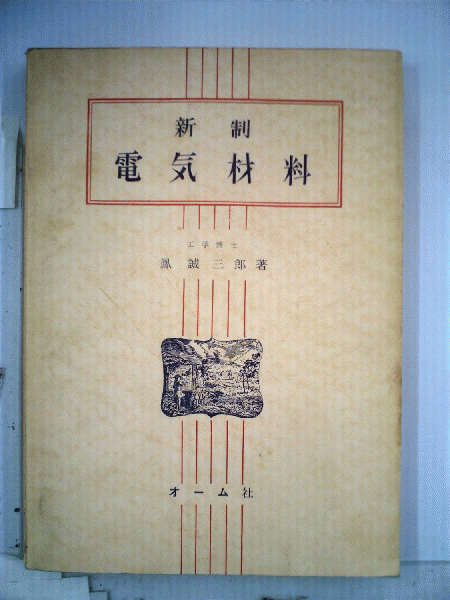 新制
電気材料
工学博士
鳳誠三郎著
オーム社